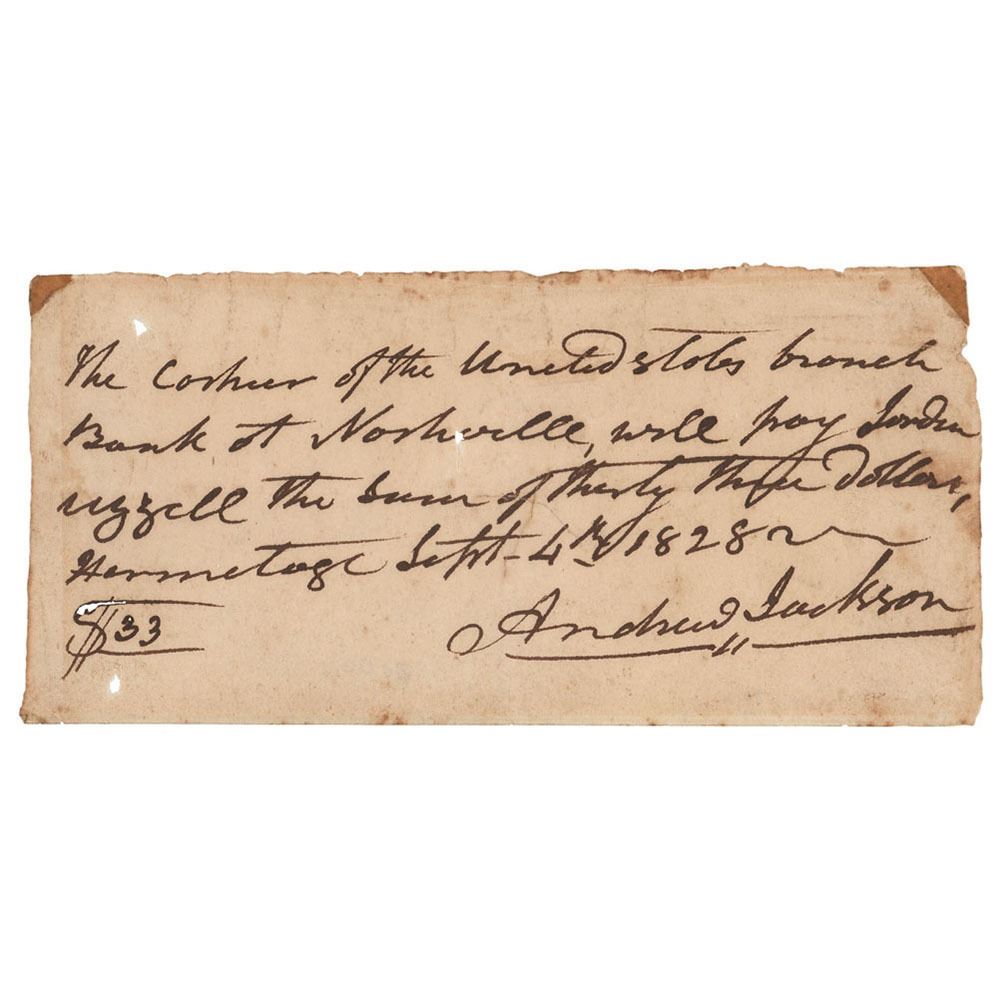 The Cashier of the United states branch
Bank at Nashville, will pay Jordan
uzzell the Sum of thirty three Dollars,
Hermitage Sept- 4th 1828
$33 Andrew Jackson